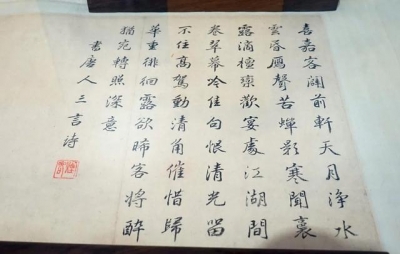 喜嘉客闢前軒天月淨水
雲昏鴈聲苦蟾影寒聞裛
露滴檀欒歡宴處江湖間
卷翠幕吟佳句恨清光留
不住高駕動清角催惜歸
華重徘徊露欲晞客將醉
猶宛轉照深意
書唐人三言詩